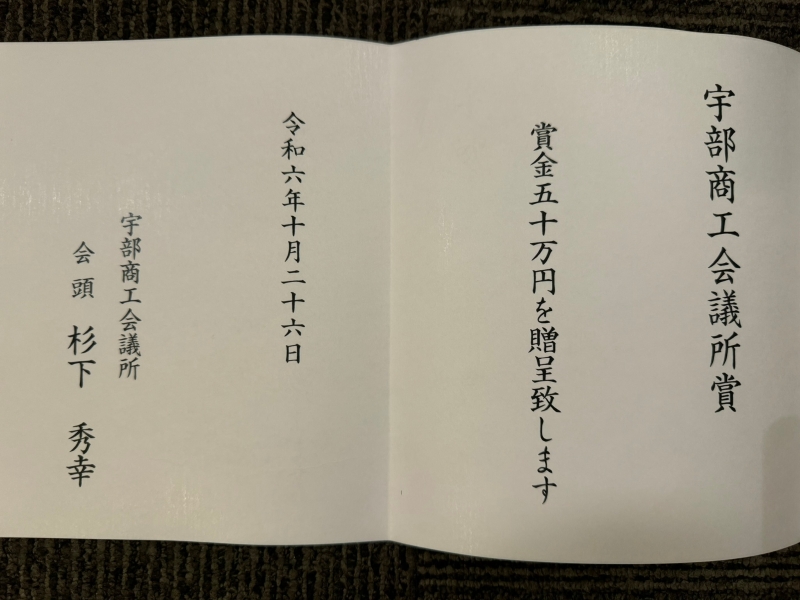 宇部商工会議所賞
賞金五十万円を贈呈致します
令和六年十月二十六日
宇部商工会議所
会頭 杉下 秀幸